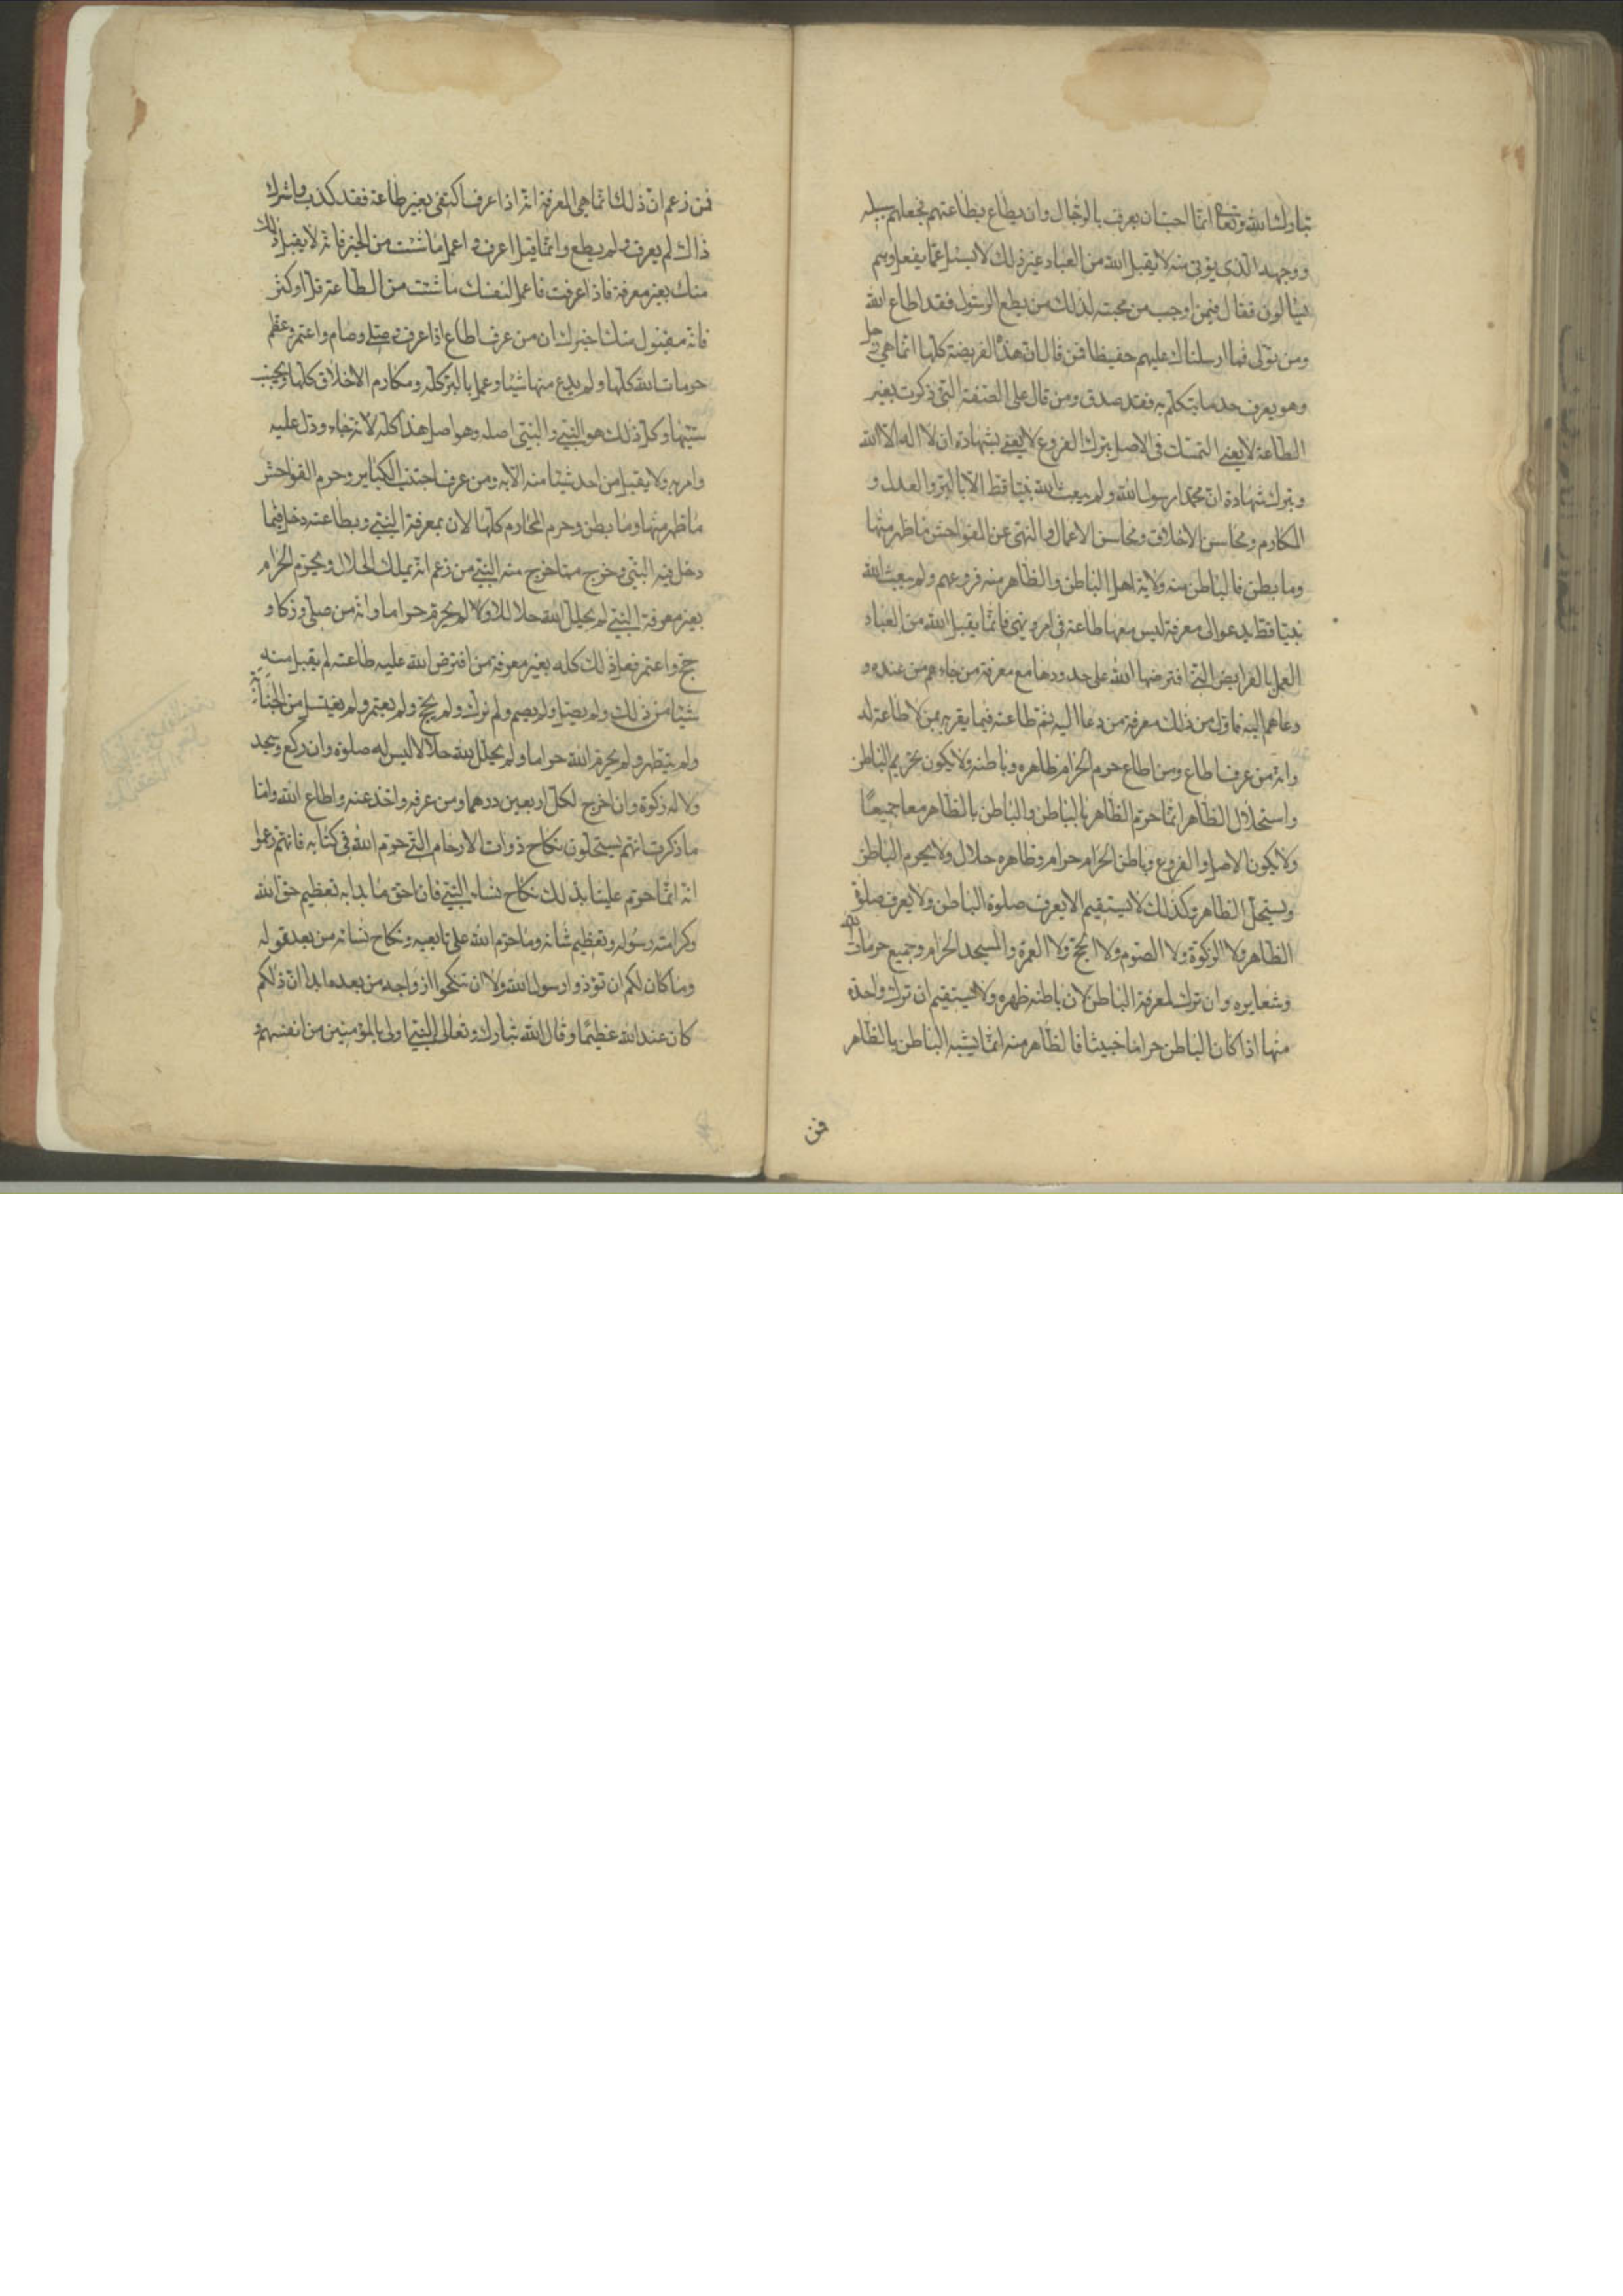 تبارك الله وتعالى انما احب ان يعرف بالرجال وان يطاع بطاعتهم فجعلهم سبيله
ووجهه الذي يؤتى منه لا يقبل الله من العباد غير ذلك لا يسئل عما يفعل وهم
يسالون فقال فيمن اوجب من محبته لذلك من يطع الرسول فقد اطاع الله
ومن تولى فما ارسلناك عليهم حفيظا فمن قال ان هذه الفريضة كلها انما هي رجل
وهو يعرف حد ما يتكلم به فقد صدق ومن قال على الصفة التي ذكرت بغير
الطاعة لا يغنى التمسك في الاصل بترك الفروع لا يغنى بشهادة ان لا اله الا الله
وبترك شهادة ان محمدا رسول الله ولم يبعث الله نبيا قط الا بالبر والعدل و
المكارم ومحاسن الاخلاق ومحاسن الاعمال والنهى عن الفواحش ما ظهر منها
وما بطن فالباطن منه ولاية اهل الباطن والظاهر منه فروعهم ولم يبعث الله
نبيا قط يدعو الى معرفة ليس معها طاعة في امر ونهى فانما يقبل الله من العباد
العمل بالفرايض التي افترضها الله على حدودها مع معرفة من جاءهم من عنده و
دعاهم اليه فاول من ذلك معرفة من دعا اليه ثم طاعته فيما يقر به بمن لا طاعة له
وانه من عرف اطاع ومن اطاع حرم الحرام ظاهره وباطنه ولا يكون تحريم الباطن
واستحلال الظاهر انما حرم الظاهر بالباطن والباطن بالظاهر معا جميعا
ولا يكون الاصل والفروع وباطن الحرام حرام وظاهره حلال ولا يحرم الباطن
ويستحل الظاهر وكذلك لا يستقيم الا يعرف صلوة الباطن ولا يعرف صلوة
الظاهر ولا الزكوة ولا الصوم ولا الحج ولا العمرة والمسجد الحرام وجميع حرمات الله
وشعايره وان ترك لمعرفة الباطن لان باطنه ظهره ولا يستقيم ان ترك واحدة
منها اذا كان الباطن حراما خبيثا فالظاهر منه انما يشبه الباطن بالظاهر
فمن
فمن زعم ان ذلك انما هي المعرفة انه اذا عرف اكتفى بغير طاعة فقد كذب واشرك
ذاك لم يعرف ولم يطع وانما قيل اعرف واعمل ما شئت من الخير فانه لا يقبل ذلك
منك بغير معرفة فاذا عرفت فاعمل لنفسك ما شئت من الطاعة قل او كثر
فانه مقبول منك اخبرك ان من عرف اطاع اذا عرف وصلى وصام واعتمر وعظم
حرمات الله كلها ولم يدع منها شيئا وعمل بالبر كله ومكارم الاخلاق كلها ويجتنب
سيئها وكل ذلك هو النبي والنبي اصله وهو اصل هذا كله لانه جاء ودل عليه
وامر به ولا يقبل من احد شيئا منه الا به ومن عرف اجتنب الكباير وحرم الفواحش
ما ظهر منها وما بطن وحرم المحارم كلها لان بمعرفة النبي وبطاعته دخل فيما
دخل فيه النبي وخرج مما خرج منه النبي من زعم انه يملك الحلال ويحرم الحرام
بغير معرفة النبي لم يحلل لله حلالا ولا لم يحرم حراما وانه من صلى وزكا و
حج واعتمر فعل ذلك كله بغير معرفة من افترض الله عليه طاعته لم يقبل منه
شيئا من ذلك ولم يصل ولم يصم ولم يزك ولم يحج ولم يعتمر ولم يغتسل من الجنابة
ولم يتطهر ولم يحرم الله حراما ولم يحلل لله حلالا ليس له صلوة وان ركع وسجد
ولا له زكوة وان اخرج لكل اربعين درهما ومن عرفه واخذ عنه واطاع الله واما
ما ذكرت انهم يستحلون نكاح ذوات الارحام التي حرم الله في كتابه فانهم زعموا
انه انما حرم علينا بذلك نكاح نساء النبي فان احق ما بدا به تعظيم حق الله
وكرامته رسوله وتعظيم شانه وما حرم الله على تابعيه ونكاح نسائه من بعد قوله
وما كان لكم ان تؤذوا رسول الله ولا ان تنكحوا ازواجه من بعده ابدا ان ذلكم
كان عند الله عظيما وقال الله تبارك وتعالى النبي اولى بالمؤمنين من انفسهم و